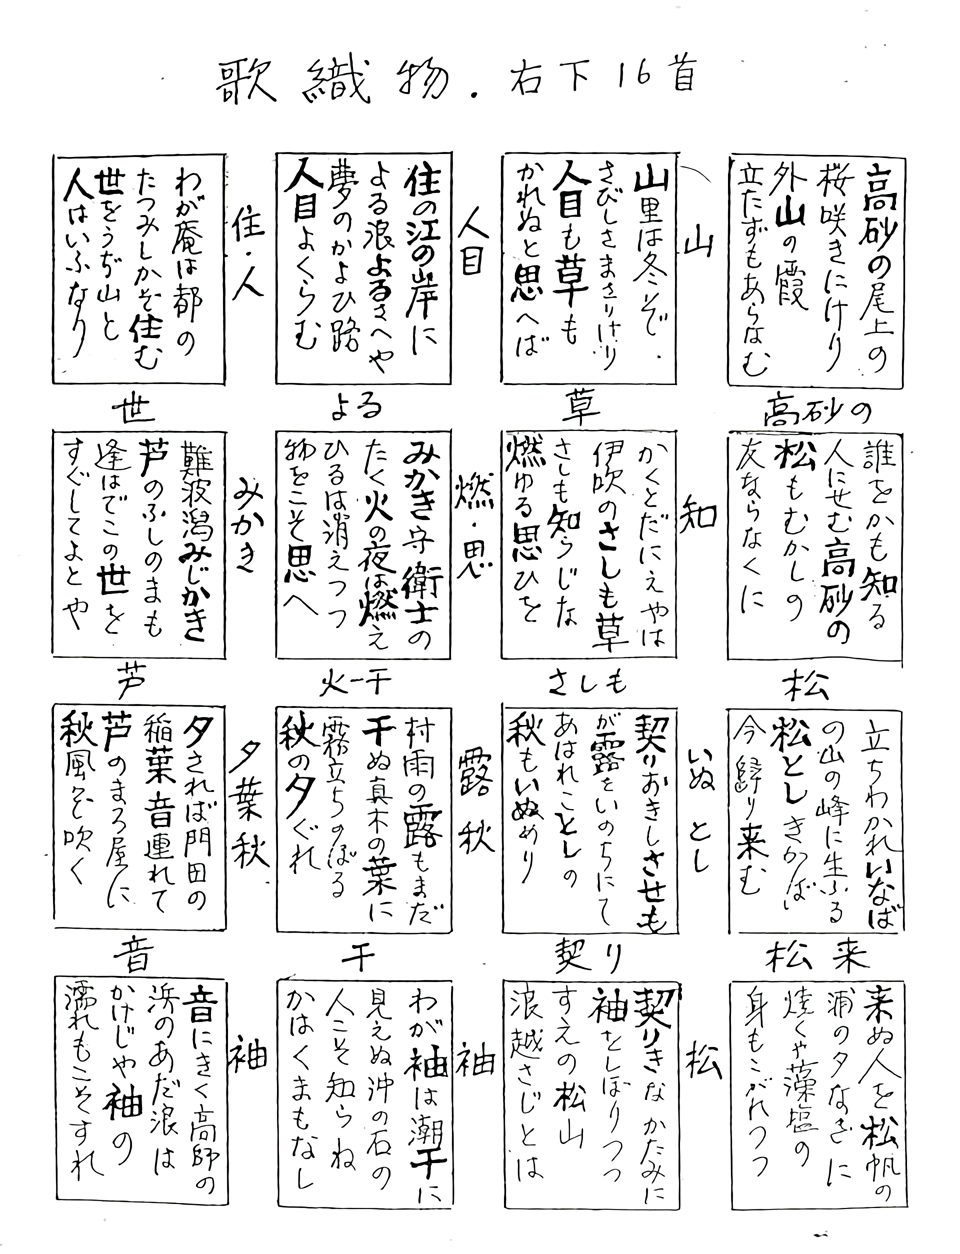 歌織物.右下16首
高砂の尾上の
桜咲きにけり
外山の霞
立たずもあらなむ
山
山里は冬ぞ
さびしさまさりけり
人目も草も
かれぬと思へば
人目
住の江の岸に
よる浪よるさへや
夢のかよひ路
人目よくらむ
住・人
わが庵は都の
たつみしかぞ住む
世をうぢ山と
人はいふなり
高砂の
草
よる
世
誰をかも知る
人にせむ高砂の
松もむかしの
友ならなくに
知
かくとだにえやは
伊吹のさしも草
さしも知らじな
燃ゆる思ひを
燃・思
みかき守衛士の
たく火の夜は燃え
ひるは消えつつ
物をこそ思へ
みかき
難波潟みじかき
芦のふしのまも
逢はでこの世を
すぐしてよとや
松
さしも
火一干
芦
立ちわかれいなば
の山の峰に生ふる
松としきかば
今歸り来む
いぬ とし
契りおきしさせも
が露をいのちにて
あはれことしの
秋もいぬめり
露秋
村雨の露もまだ
干ぬ真木の葉に
霧立ちのぼる
秋の夕ぐれ
夕葉秋
夕されば門田の
稲葉音連れて
芦のまろ屋に
秋風ぞ吹く
松来
契り
干
音
来ぬ人を松帆の
浦の夕なぎに
焼くや藻塩の
身もこがれつつ
松
契りきなかたみに
袖をしぼりつつ
すえの松山
浪越さじとは
袖
わが袖は潮干に
見えぬ沖の石の
人こそ知らね
かはくまもなし
袖
音にきく高師の
浜のあだ浪は
かけじや袖の
濡れもこそすれ